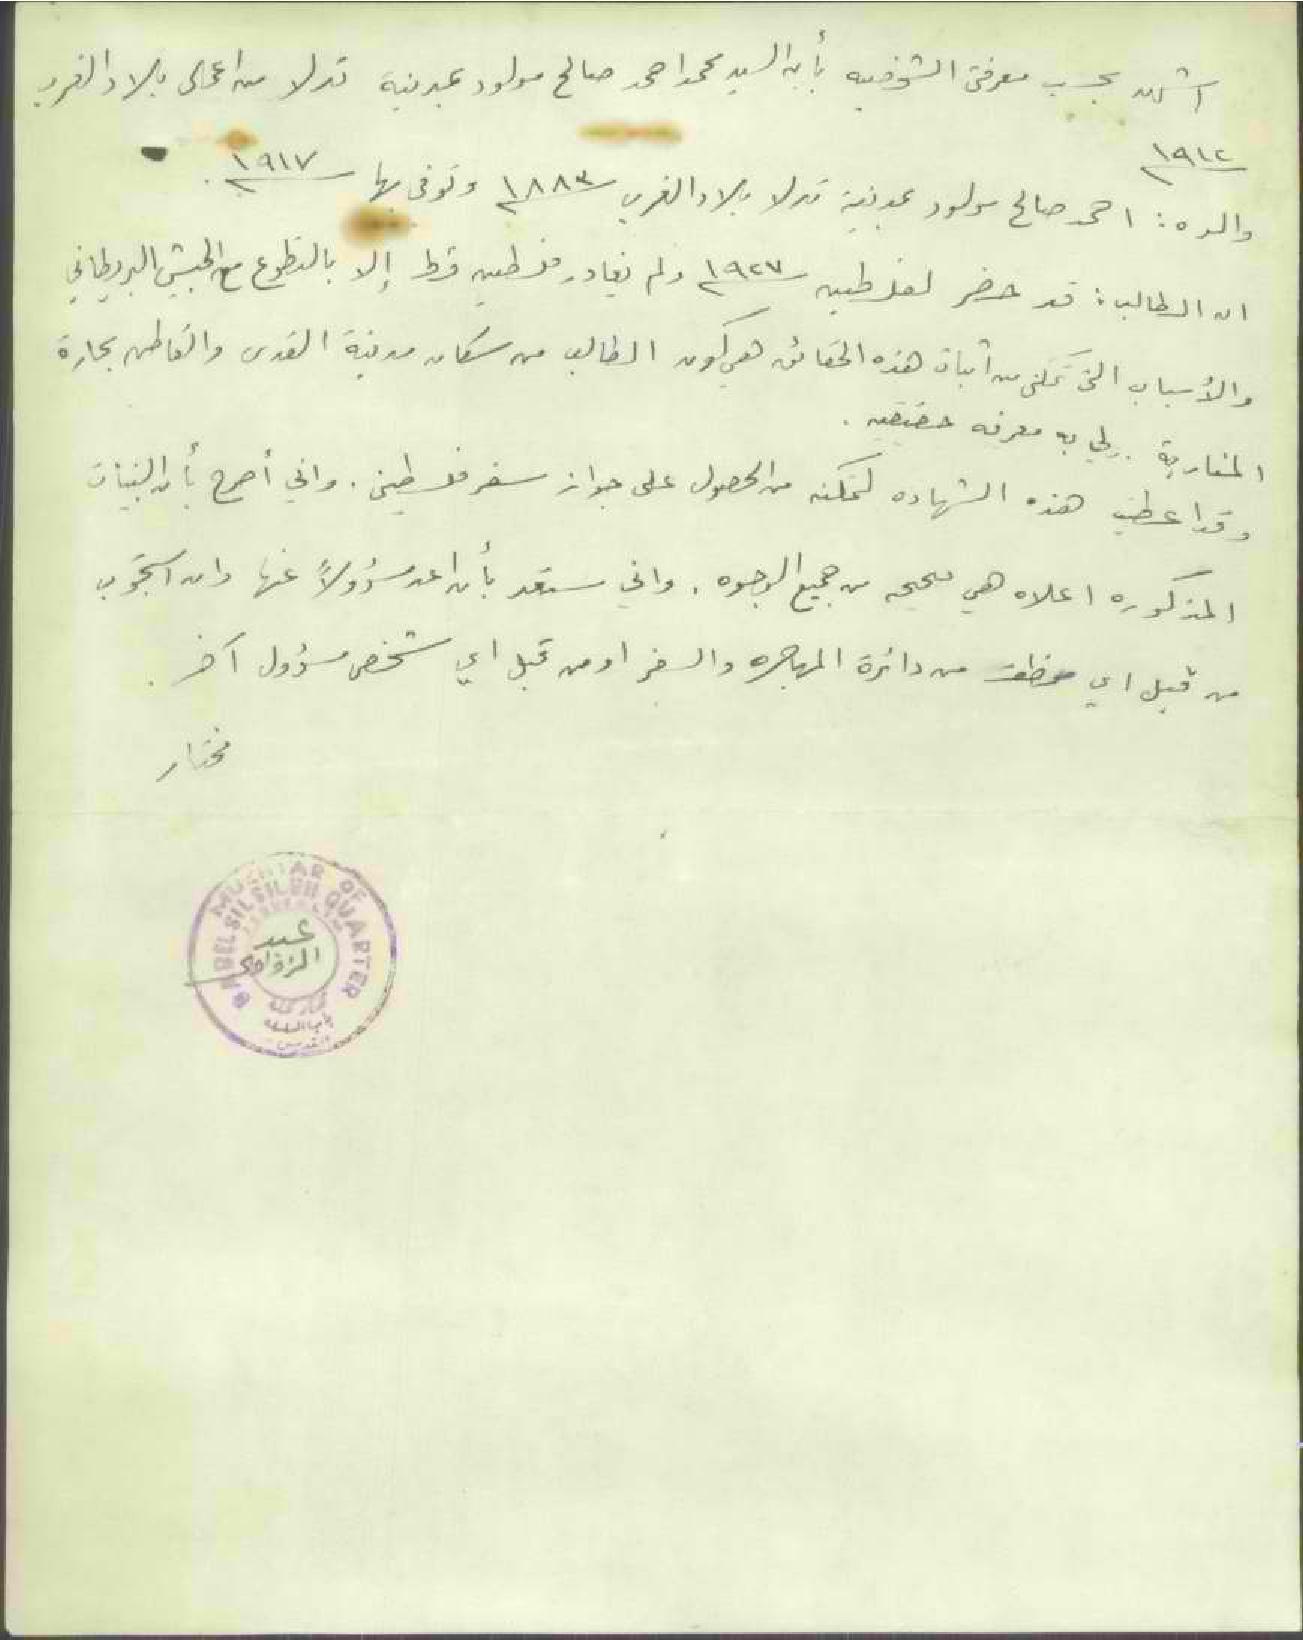 اشهد بحسب معرفتي الشخصيه بأن السيد محمد احمد صالح مولود بمدينة تدلا من اعمال بلاد الغرب
١٩١٢
والده : احمد صالح مولود بمدينة تدلا بلاد الغرب ١٨٨٣ وتوفى بها ١٩١٧ .
ان الطالب : قد حضر لفلسطين ١٩٢٧ ولم يغادر فلسطين قط إلا بالتطوع مع الجيش البريطاني
والأسباب التي تمكني من اثبات هذه الحقائق هي كون الطالب من سكان مدينة القدس والقاطن بحارة
المغاربة ولي به معرفه حقيقيه .
وقد اعطيت هذه الشهاده لتمكنه من الحصول على جواز سفر فلسطيني . واني أصرح بأن البينات
المذكوره اعلاه هي صحيحه من جميع الوجوه . واني مستعد بأن اعد مسؤولاً عنها وان استجوب
من قبل اي موظف من دائرة المهاجره والسفر او من قبل اي شخص مسؤول آخر .
مختار
MUKHTAR OF
BAB EL SILSILEH QUARTER
JERUSALEM
عبد
مختار محلة
باب السلسلة
القدس